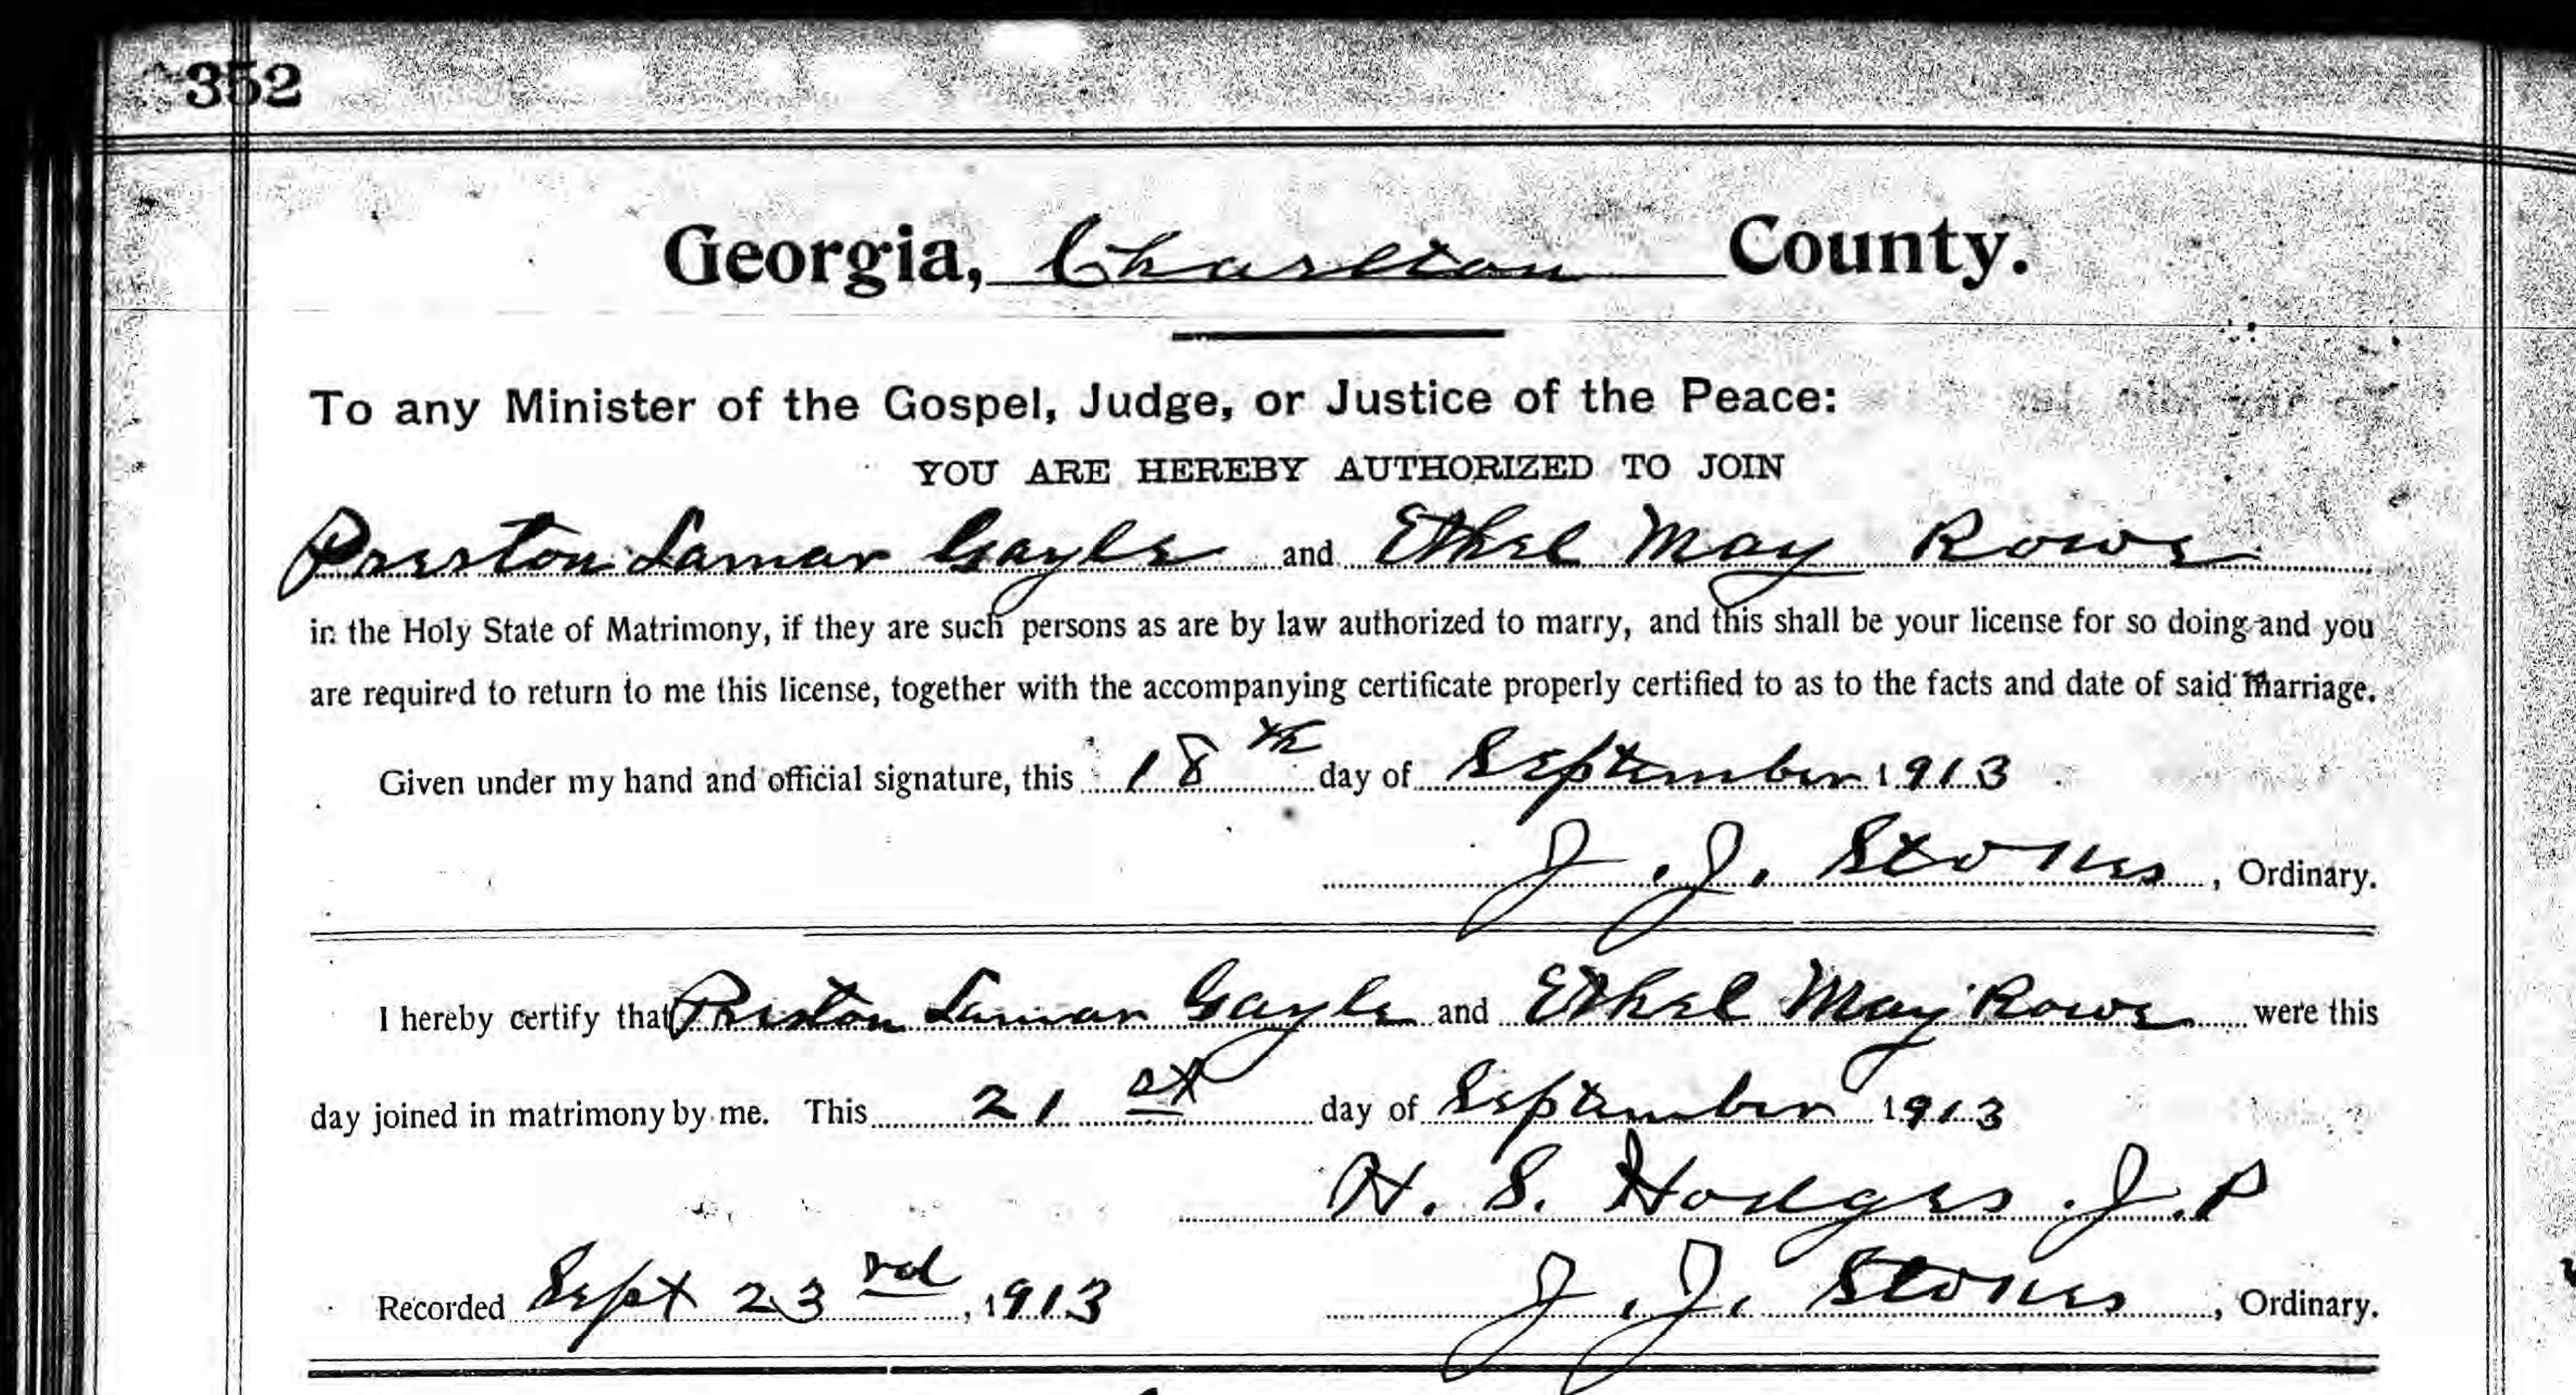 352
Georgia, Charlton County.
To any Minister of the Gospel, Judge, or Justice of the Peace:
YOU ARE HEREBY AUTHORIZED TO JOIN
Preston Lamar Gayle and Ethel May Rowe
in the Holy State of Matrimony, if they are such persons as are by law authorized to marry, and this shall be your license for so doing and you
are required to return to me this license, together with the accompanying certificate properly certified to as to the facts and date of said Marriage.
Given under my hand and official signature, this 18th day of September 1913
J. J. Stokes, Ordinary.
I hereby certify that Preston Lamar Gayle and Ethel May Rowe were this
day joined in matrimony by me. This 21 st day of September 1913
H. S. Hodges J.P
Recorded Sept 23 rd, 1913 J. J. Stokes, Ordinary.